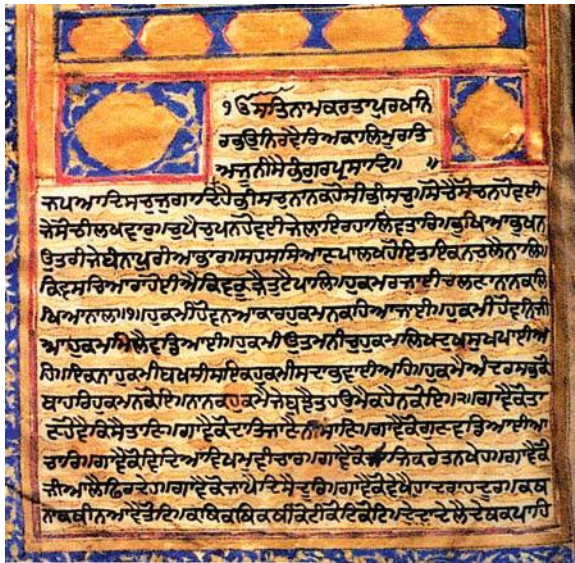 ੧ਓ ਸਤਿਨਾਮਕਰਤਾਪੁਰਖਨਿ
ਰਭਉਨਿਰਵੈਰਿਅਕਾਲਿਮੂਰਤਿ
ਅਜੂਨੀਸੈਭੰਗੁਰਪ੍ਰਸਾਦਿ॥ ॥
ਜਪਆਦਿਸਚੁਜੁਗਾਦਿਹੈਭੀਸਚੁਨਾਨਕਹੋਸੀਭੀਸਚੁ॥ਸੋਚੈਸੋਚਨਹੋਵਈ
ਜੇਸੋਚੀਲਖਵਾਰ॥ਚੁਪੈਚੁਪਨਹੋਵਈਜੇਲਾਇਰਹਾਲਿਵਤਾਰਿ॥ਭੁਖਿਆਭੁਖਨ
ਉਤਰੀਜੇਬੰਨਪੁਰੀਆਭਾਰ॥ਸਹਸਸਿਆਣਪਾਲਖਹੋਇਤਇਕਨਚਲੈਨਾਲਿ॥
ਕਿਵਸਚਿਆਰਾਹੋਈਐਕਿਵਕੂੜੈਤੁਟੈਪਾਲਿ॥ਹੁਕਮਰਜਾਈਚਲਣਾਨਾਨਕਲਿ
ਖਿਆਨਾਲ॥੧॥ਹੁਕਮੀਹੋਵਨਆਕਾਰਹੁਕਮਨਕਹਿਆਜਾਈ॥ਹੁਕਮੀਹੋਵਨਿਜੀ
ਆਹੁਕਮਮਿਲੈਵਡਿਆਈ॥ਹੁਕਮੀਉਤਮਨੀਚੁਹੁਕਮਲਿਖਦੁਖਸੁਖਪਾਈਅ
ਹਿ॥ਇਕਨਾਹੁਕਮੀਬਖਸੀਸਇਕਹੁਕਮੀਸਦਾਭਵਾਈਅਹਿ॥ਹੁਕਮੈਅੰਦਰਸਭੁਕੋ
ਬਾਹਰਿਹੁਕਮਨਕੋਇ॥ਨਾਨਕਹੁਕਮੈਜੇਬੁਝੈਤਹਉਮੈਕਹੈਨਕੋਇ॥੨॥ਗਾਵੈਕੋਤਾ
ਣਹੋਵੈਕਿਸੈਤਾਣਿ॥ਗਾਵੈਕੋਦਾਤਿਜਾਣੈਨੀਸਾਣਿ॥ਗਾਵੈਕੋਗੁਣਵਡਿਆਈਆ
ਚਾਰਿ॥ਗਾਵੈਕੋਵਿਦਿਆਵਿਖਮੁਵੀਚਾਰੁ॥ਗਾਵੈਕੋਸਾਜਿਕਰੇਤਨਖੇਹ॥ਗਾਵੈਕੋ
ਜੀਆਲੈਫਿਰਦੇਹ॥ਗਾਵੈਕੋਜਾਪੈਦਿਸੈਦੂਰਿ॥ਗਾਵੈਕੋਵੇਖੈਹਾਦਰਾਹਦੂਰ॥ਕਥ
ਨਾਕਥੀਨਆਵੈਤੋਟਿ॥ਕਥਿਕਥਿਕਥੀਕੋਟੀਕੋਟਿਕੋਟਿ॥ਦੇਦਾਦੇਲੈਦੇਥਕਪਾਹਿ